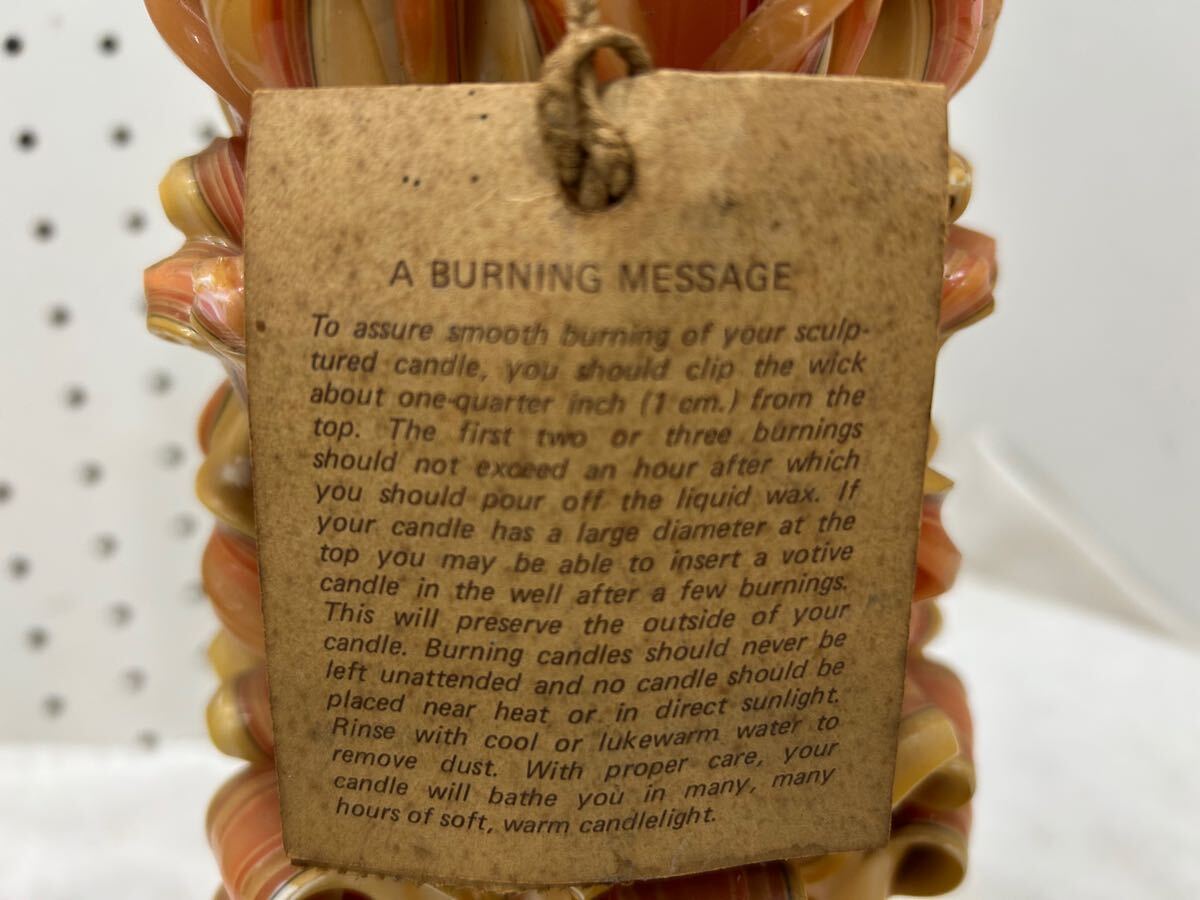 A BURNING MESSAGE
To assure smooth burning of your sculp-
tured candle, you should clip the wick
about one-quarter inch (1 cm.) from the
top. The first two or three burnings
should not exceed an hour after which
you should pour off the liquid wax. If
your candle has a large diameter at the
top you may be able to insert a votive
candle in the well after a few burnings.
This will preserve the outside of your
candle. Burning candles should never be
left unattended and no candle should be
placed near heat or in direct sunlight.
Rinse with cool or lukewarm water to
remove dust. With proper care, your
candle will bathe you in many, many
hours of soft, warm candlelight.